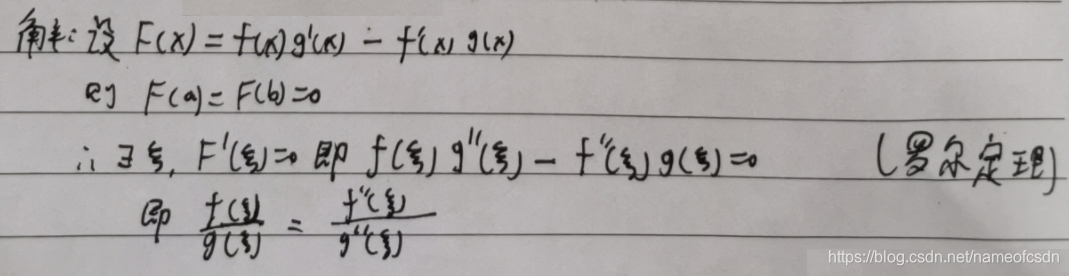 解:设 F(x) = f(x)g'(x) - f'(x)g(x)
则 F(a)=F(b)=0
∴ ∃ξ, F'(ξ)=0 即 f(ξ)g''(ξ) - f''(ξ)g(ξ)=0 (罗尔定理)
即 f(ξ)/g(ξ) = f''(ξ)/g''(ξ)
https://blog.csdn.net/nameofcsdn